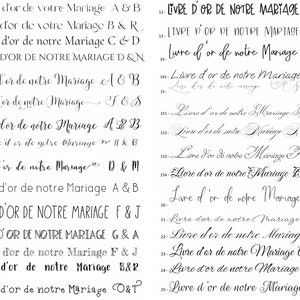 d'or de notre Mariage A & B
d'or de notre Mariage B & R
d'or de notre Mariage C & D
D'OR DE NOTRE MARIAGE D & N
d'or de notre Mariage A & B
d'or de notre Mariage F & S
d'or de notre Mariage A & B
d'or de notre Mariage
d'or de notre Mariage D & M
d'or de notre Mariage A & B
D'OR DE NOTRE MARIAGE F & J
d'or de notre Mariage G & A
d'or de notre Mariage F & J
d'or de notre Mariage B&R
d'or de notre Mariage O&T
LIVRE D'OR DE NOTRE MARIAGE
LIVRE D'OR DE NOTRE MARIAGE
Livre d'or de notre Mariage
Livre d'or de notre Mariage
Livre d'or de notre Mariage
Livre d'or de notre Mariage
Livre d'or de notre Mariage
Livre d'or de notre Mariage
Livre d'or de notre Mariage
Livre d'or de notre M
Livre d'or de notre Mariage
Livre d'or de notre Mariage
Livre d'or de notre Mariage
Livre d'or de notre Mariage